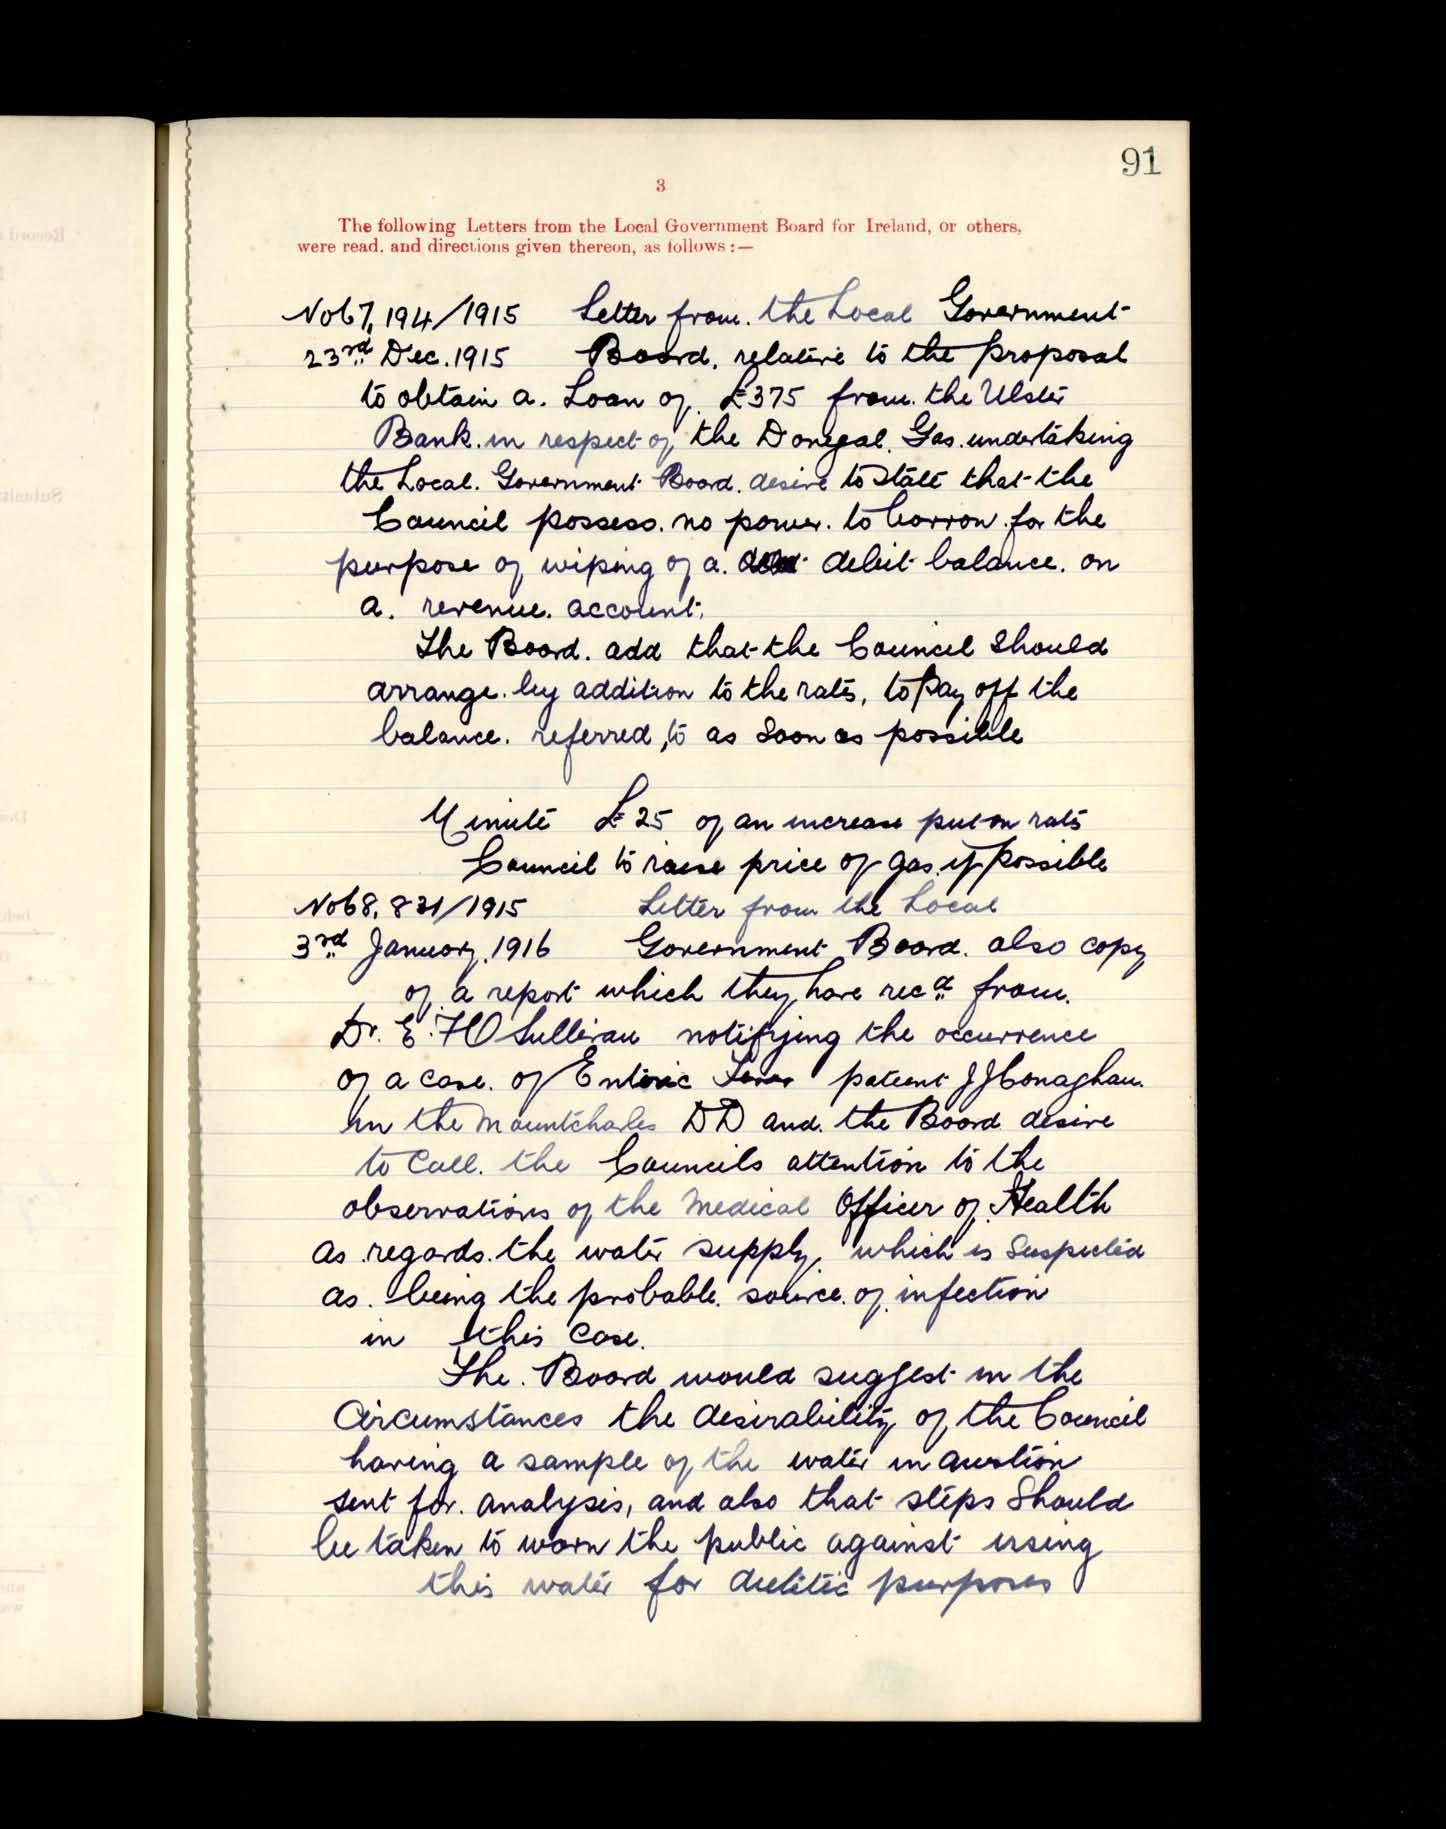 91
3
The following Letters from the Local Government Board for Ireland, or others,
were read. and directions given thereon, as follows :—
No 67,194/1915 Letter from. the Local Government
23rd Dec. 1915 Board. relative to the proposal
to obtain a. Loan of. £375 from. the Ulster
Bank. in respect of the Donegal. Gas. undertaking
the Local. Government Board. desire to state that the
Council possess. no power. to borrow. for the
purpose of wiping of a. debit balance. on
a. revenue. account.
The Board. add that the Council should
arrange. by addition to the rates, to pay off the
balance. referred, to as soon as possible
Minute £25 of an increase put on rates
Council to raise price of gas. if possible
No 68,831/1915 Letter from the Local
3rd January, 1916 Government Board. also copy
of a report which they have recd from.
Dr. E. F O Sullivan notifying the occurrence
of a case. of Enteric Fever patient J J Conaghan.
in the Mountcharles DD and. the Board desire
to call. the Councils attention to the
observations of the Medical Officer of Health
as regards. the water supply, which is suspected
as. being the probable. source. of infection
in this case.
The. Board would suggest in the
circumstances the desirability of the Council
having a sample of the water in
sent for. analysis, and also that steps should
be taken to warn the public against using
this water for purposes